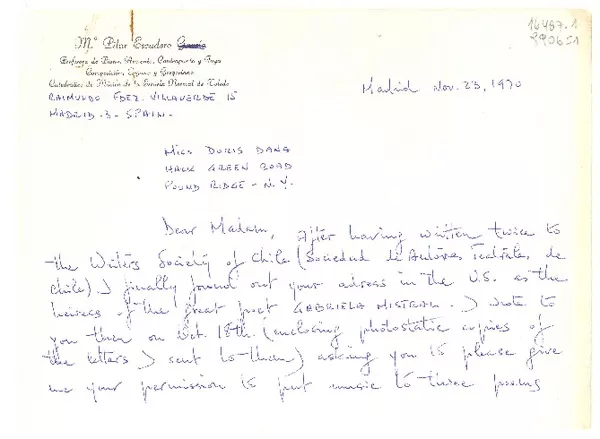 16487.1
990651
Mª Pilar Escudero García
Profesora de Piano, Armonía, Contrapunto y Fuga
Composición, Organo y Gregoriano
Catedrático de Música de la Escuela Normal de Toledo
RAIMUNDO FDEZ. VILLAVERDE 15
MADRID.3 - SPAIN.
Madrid Nov. 23, 1970
MISS DORIS DANA
HACK GREEN ROAD
POUND RIDGE - N.Y.
Dear Madam, After having written twice to
the Writers Society of Chile (Sociedad de Autores Teatrales, de
Chile). I finally found out your adress in the U.S. as the
heiress of the great poet GABRIELA MISTRAL. I wrote to
you then on Oct. 18th. (enclosing photostatic copies of
the letters I sent to them) asking you to please give
me your permission to put music to three poems